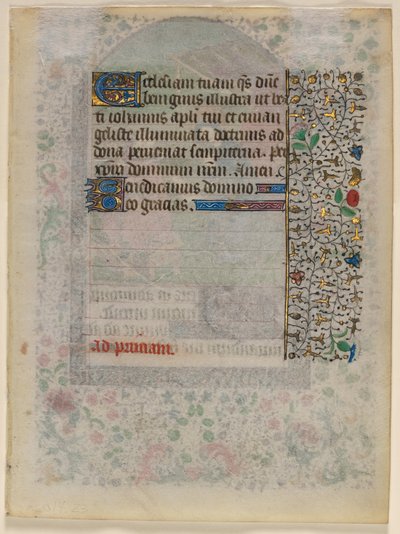 Ecclesiam tuam qs dñe
benignus illustra ut be
ti iohannis apłi tui et euan
geliste illuminata doctrinis ad
dona perueniat sempiterna. Per
xp̄m dominum nr̄m. Amen.
Benedicamus domino
Deo gracias.
Ad primam.